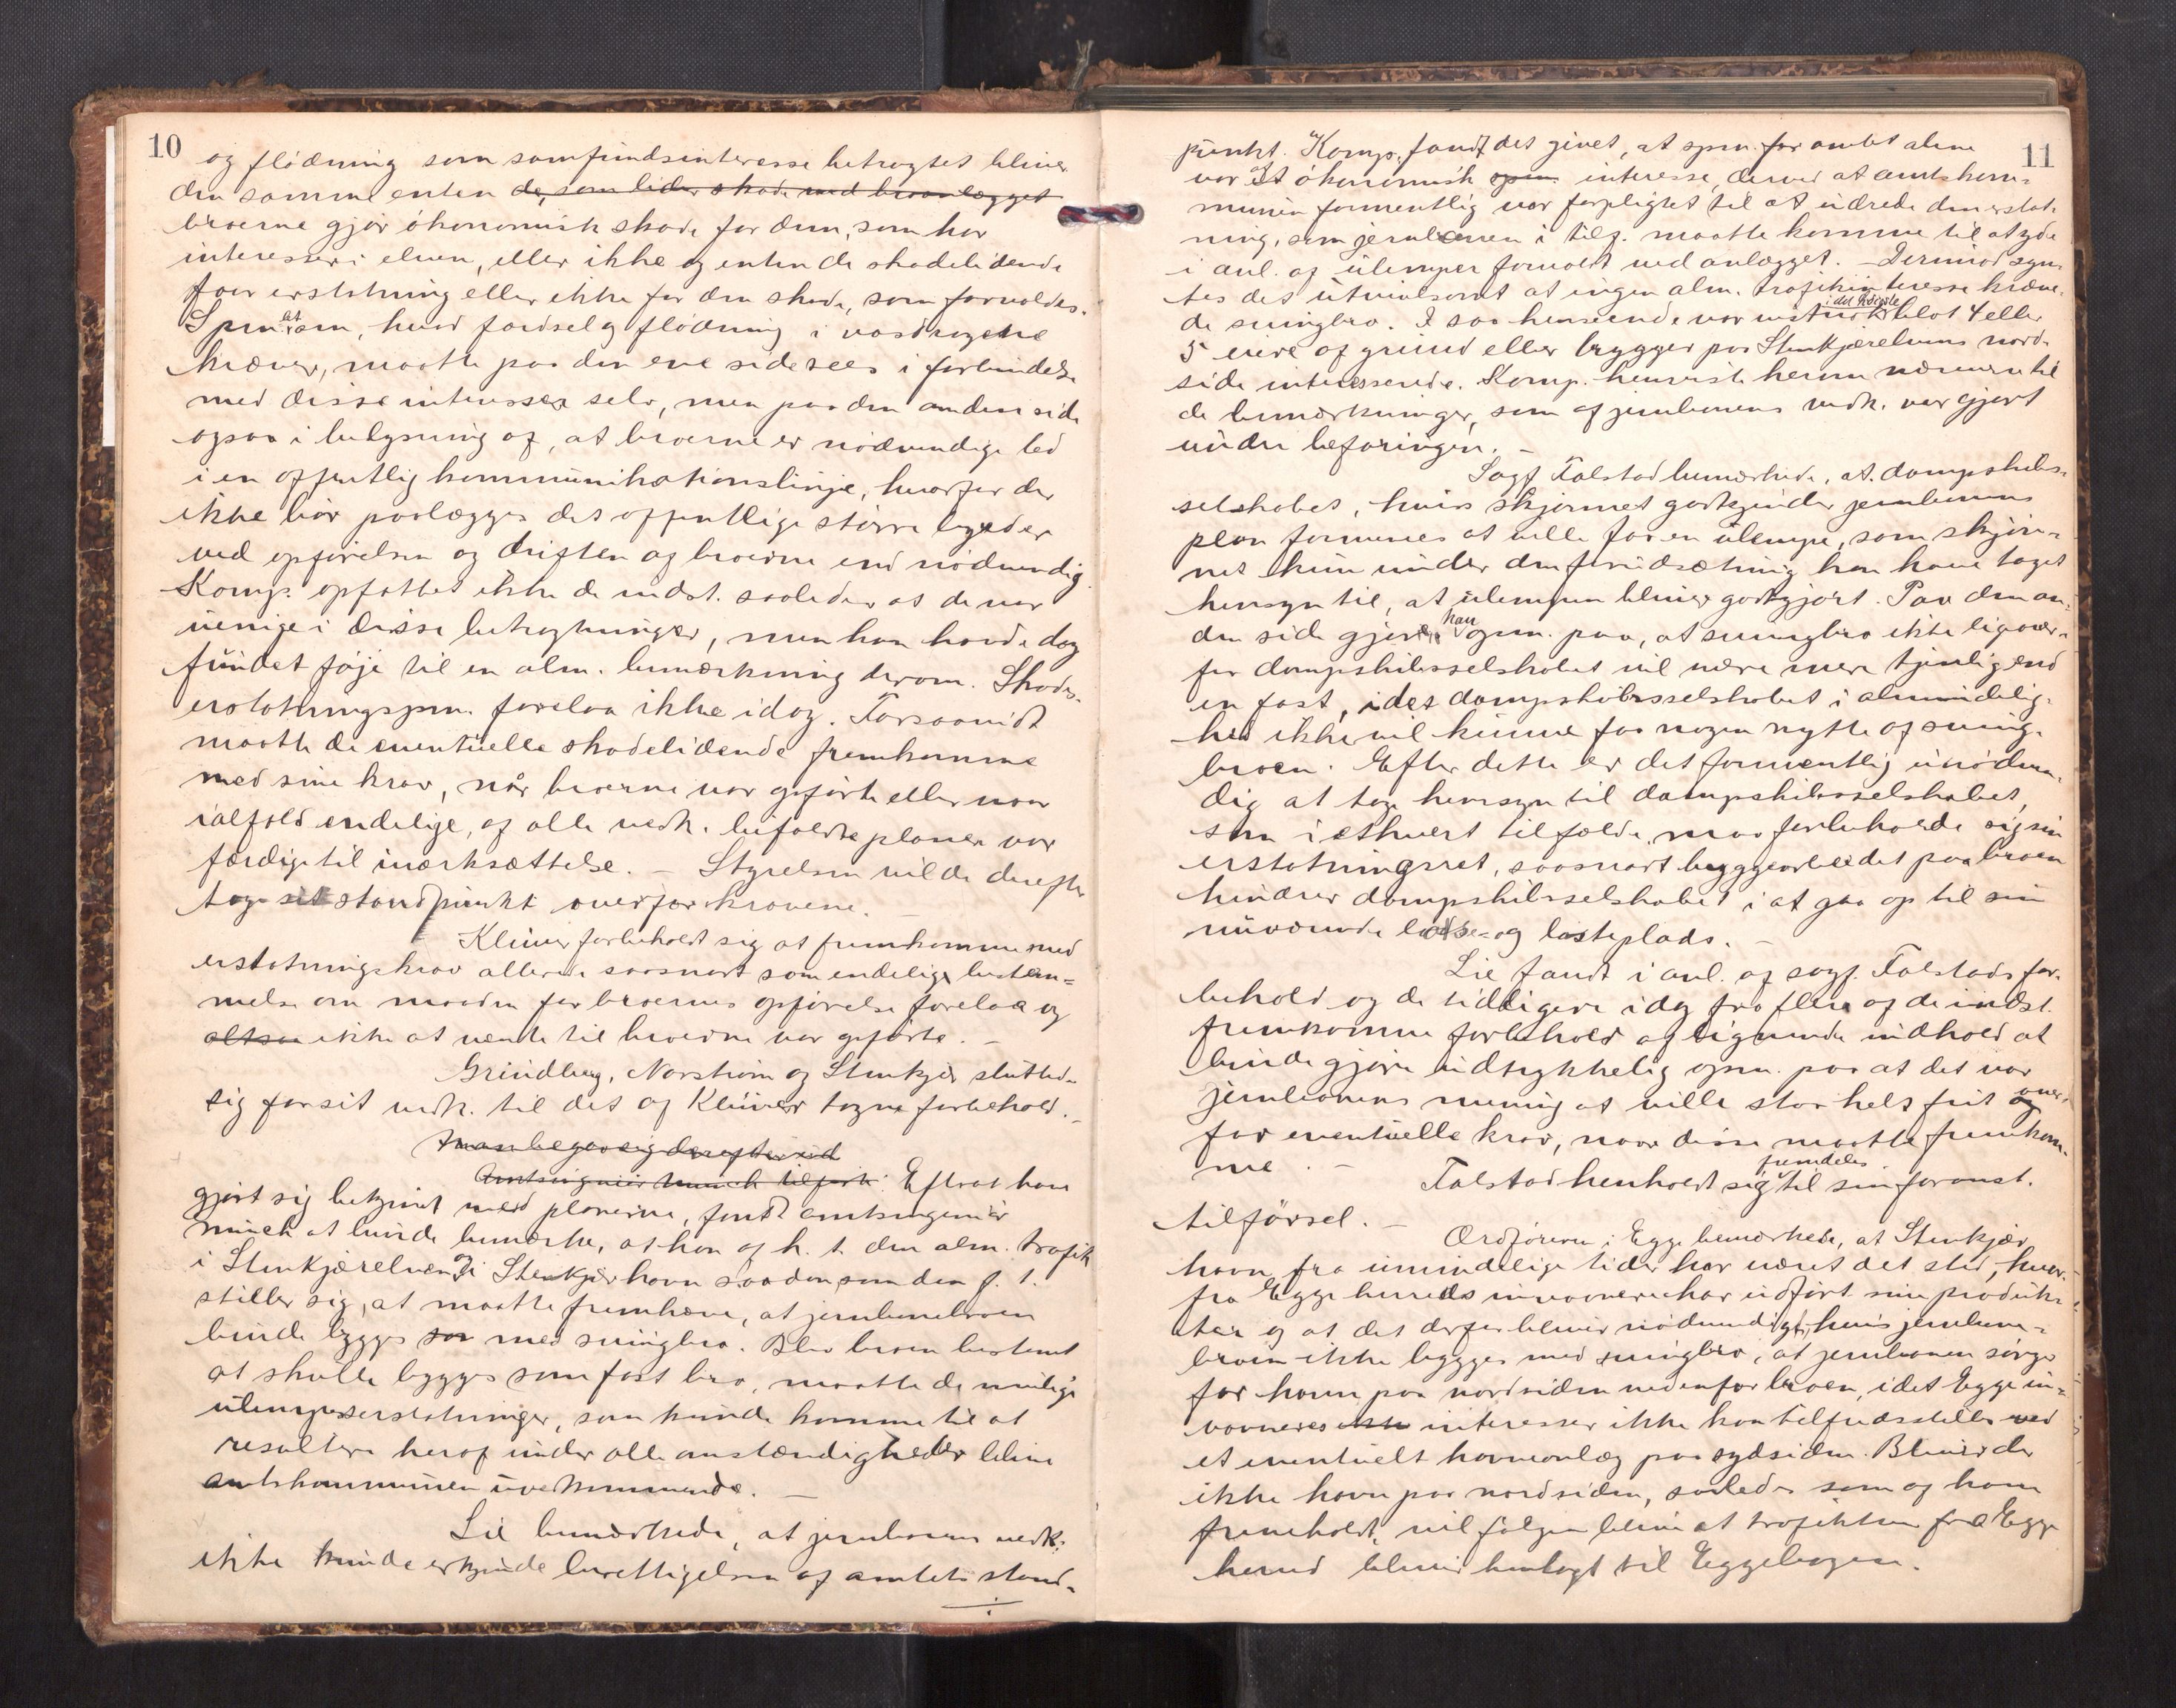 10
og flödning som samfundsinteresse betragtet bliver
den samme enten de, som lider skade ved broanlægget
broerne gjör ökonomisk skade for dem, som har
interesser i elven, eller ikke og enten de skadelidende
faar erstatning eller ikke for den skade, som forvoldes.
Spm. at om, hvad færdsel og flödning i vasdragene
kræver, maatte paa den ene side sees i forbindelse
med disse interesser selv, men paa den anden side
ogsaa i belysning af, at broerne er nödvendige led
i en offentlig kommunikationslinje, hvorfor der
ikke bör paalægges det offentlige större byrder
ved opförelsen og driften af broerne end nödvendig.
Komp. opfattet ikke de indst. saaledes at de var
uenige i disse betragtninger, men han havde dog
fundet föje til en alm. bemærkning derom. Skades-
erstatningsspm. forelaa ikke idag. Forsaavidt
maatte de eventuelle skadelidende fremkomme
med sine krav, når broerne var opförte eller naar
ialfald endelige, af alle vedk. bifaldte planer var
færdige til iværksættelse. – Styrelsen vilde derefter
tage sit standpunkt overfor kravene. –
Klüwer forbeholdt sig at fremkomme med
erstatningskrav allerede saasnart som endelige bestem=
melse om maaden for broernes opförelse forelaa og
altsaa ikke at vente til broerne var opförte. –
Grindberg, Norström og Stenkjer sluttede
sig forsit vedk. til det af Klüwer tagne forbehold. –
Man begav sig derefter ud
Amtsingeniör Munch tilförte: Efterat have
gjort sig bekjent med planerne, fandt amtsingeniör
Munch at burde bemærke, at han af h. t. den alm. trafik
i Stenkjærelven og i Stenkjær havn saadan som den p. t.
stiller sig, at maatte fremhæve, at jernbanebroen
burde bygges som med svingbro. Blev broen bestemt
at skulle bygges som fast bro, maatte de mulige
ulempeserstatninger, som kunde komme til at
resultere heraf under alle omstændigheder blive
amtskommunen uvedkommende. –
Lie bemærkede, at jernbanens vedk.
ikke kunde erkjende berettigelsen af amtets stand-
11
punkt. Komp. fandt det givet, at spm. for amtet alene
var et ökonomisk spm. interesse, derved at amtskom=
munen formentlig var forpligtet til at udrede den erstat-
ning, som jernbanen i tilf. maatte komme til at yde
i anl. af ulemper forvoldt ved anlægget. – Derimod syn-
tes det utvivlsomt at ingen alm. trafikinteresse kræve-
de svingbro. I saa henseende var vistnok i det höieste blot 4 eller
5 eiere af grund eller brygger paa Stenkjærelvens nord-
side interesserede. Komp. henviste herom nærmere til
de bemærkninger, som af jernbanens vedk. var gjort
under befaringen. –
Sagf. Falstad bemærkede, at dampskibs-
selskabet, hvis skjönnet godkjender jernbanens
plan formenes at ville faa en ulempe, som skjön-
net kun under den forudsætning kan have taget
hensyn til, at ulempen bliver godtgjort. Paa den an-
den side gjöres han opm. paa, at svingbro ikke ligeover-
for dampskibsselskabet vil være mere tjenlig end
en fast, idet dampskibsselskabet i almindelig-
hed ikke vil kunne faa nogen nytte af sving-
broen. Efter dette er det formentlig unödven-
dig at tage hensyn til dampskibsselskabet,
som i ethvert tilfælde maa forbeholde sig sin
erstatningsret, saasnart byggearbeidet paa broen
hindrer dampskibsselskabet i at gaa op til sin
nuværende losse- og lasteplads. –
Lie fandt i anl. af sagf. Falstads for-
behold og de tidligere idag fra flere af de indst.
fremkomne forbehold af lignende indhold at
burde gjöre udtrykkelig opm. paa at det var
jernbanens mening at ville staa helt frit og over-
for eventuelle krav, naar disse maatte fremkom-
me. –
Falstad henholdt sig fremdeles til sin foranst.
tilförsel. –
Ordföreren i Egge bemærkede, at Stenkjær
havn fra umindelige tider har været det sted, hvor-
fra Egge herreds indvaanere har udfört sine produk-
ter og at det derfor bliver nödvendigt, hvis jernbane-
broen ikke bygges med svingbro, at jernbanen sörger
for havn paa nordsiden nedenfor broen, idet Egge ind-
vaaneres interesser ikke kan tilfredsstilles ved
et eventuelt havneanlæg paa sydsiden. Bliver der
ikke havn paa nordsiden, saaledes som af ham
fremholdt, vil fölgen blive at trafikken fra Egge
herred bliver henlagt til Eggebogen.